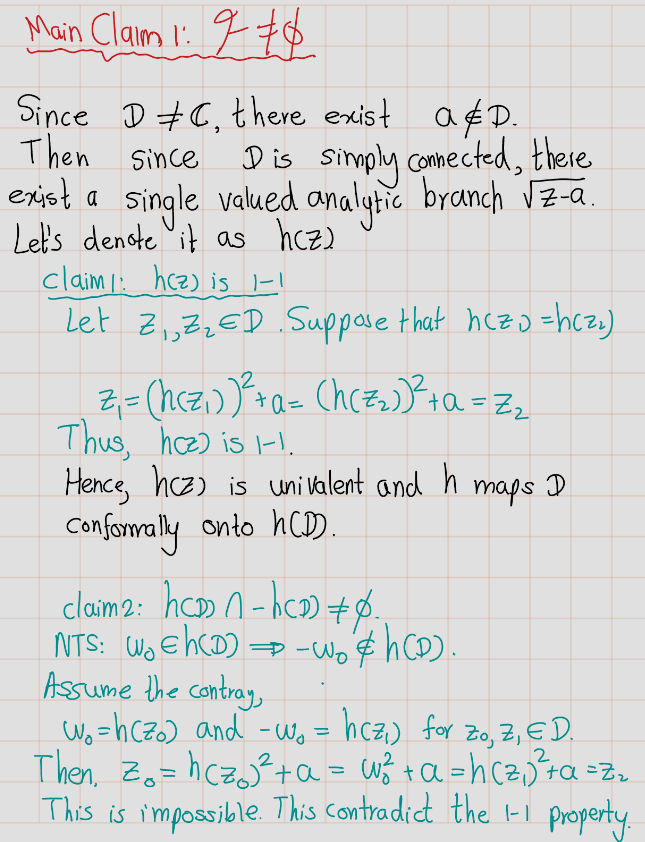 Main Claim 1: 𝓕 ≠ ∅
Since D ≠ ℂ, there exist a ∉ D.
Then since D is simply connected, there
exist a single valued analytic branch √z-a.
Let's denote it as h(z)
claim 1: h(z) is 1-1
Let z₁, z₂ ∈ D. Suppose that h(z₁) = h(z₂)
z₁ = (h(z₁))² + a = (h(z₂))² + a = z₂
Thus, h(z) is 1-1.
Hence, h(z) is univalent and h maps D
conformally onto h(D).
claim 2: h(D) ∩ -h(D) ≠ ∅.
NTS: w₀ ∈ h(D) ⟹ -w₀ ∉ h(D).
Assume the contray,
w₀ = h(z₀) and -w₀ = h(z₁) for z₀, z₁ ∈ D.
Then, z₀ = h(z₀)² + a = w₀² + a = h(z₁)² + a = z₂
This is impossible. This contradict the 1-1 property.